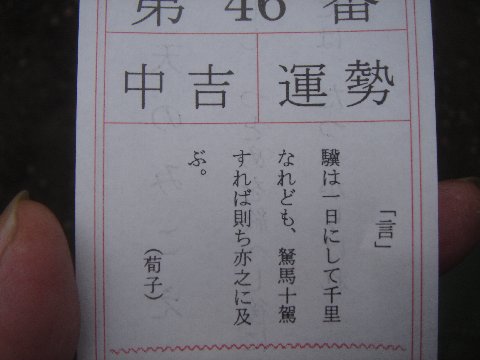 第46番
運勢 中吉
「言」
驥は一日にして千里
なれども、駑馬十駕
すれば則ち亦之に及
ぶ。
(荀子)